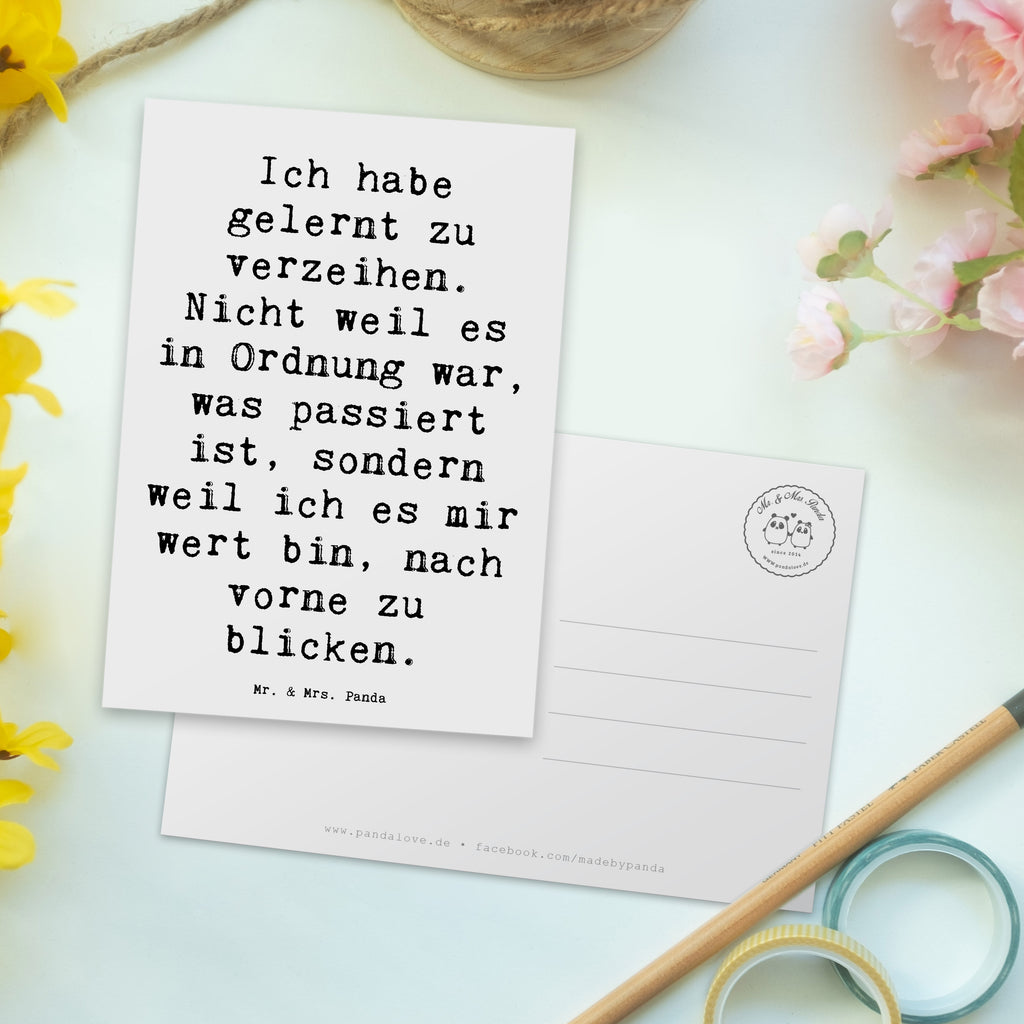 Ich habe
gelernt zu
verzeihen.
Nicht weil es
in Ordnung war,
was passiert
ist, sondern
weil ich es mir
wert bin, nach
vorne zu
blicken.
Mr. & Mrs. Panda
Mr. & Mrs. Panda
since 2014
www.pandalove.de
www.pandalove.de • facebook.com/madebypanda
PITT PASTEL
FABER-CASTELL